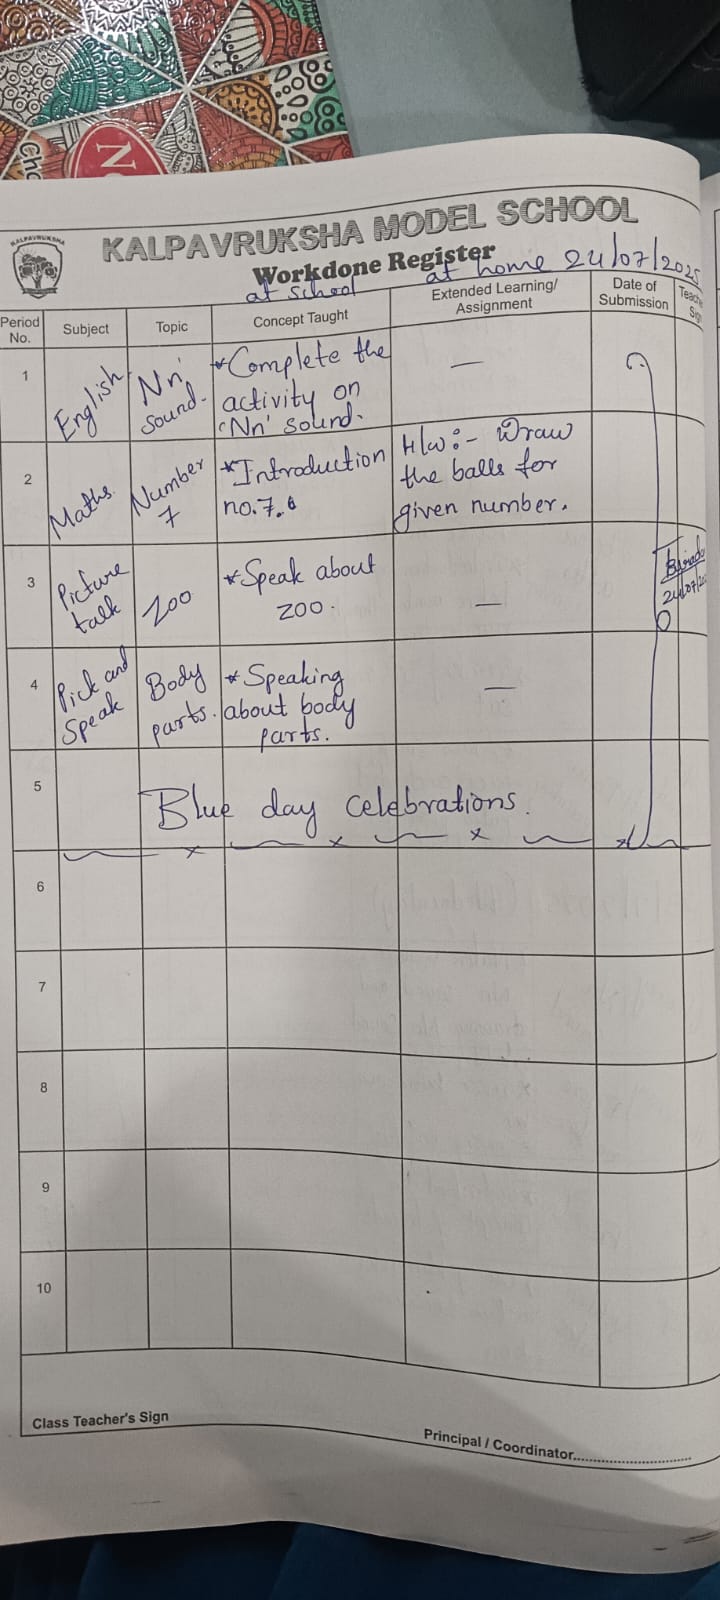 KALPAVRUKSHA
KALPAVRUKSHA MODEL SCHOOL
Workdone Register
at school
at home 24/07/2025
Period No.
Subject
Topic
Concept Taught
Extended Learning/ Assignment
Date of Submission
1
English
'Nn' sound.
*Complete the
activity on
'Nn' sound.
—
2
Maths.
Number 7
*Introduction
no.7.
H/W:- Draw
the balls for
given number.
3
Picture talk
Zoo
*Speak about
zoo.
—
24/07/
4
Pick and Speak
Body parts.
*Speaking
about body
parts.
—
5
Blue day celebrations.
6
7
8
9
10
Class Teacher's Sign
Principal / Coordinator